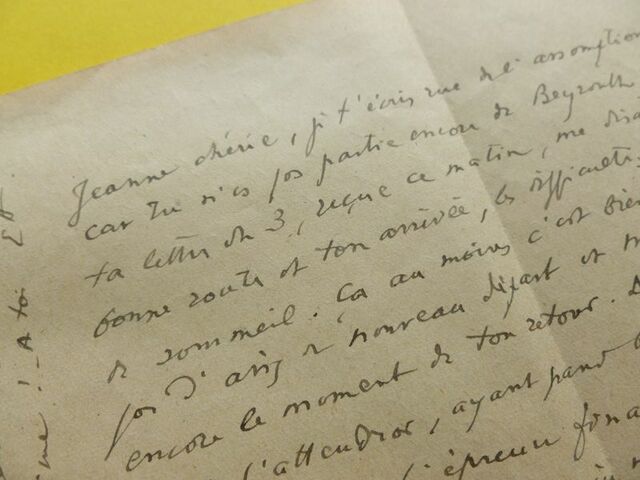 Jeanne chérie, je t'écris rue de l'assomption
car tu n'es pas partie encore de Beyrouth
ta lettre du 3, reçue ce matin, me disa
bonne route et ton arrivée, les difficultés
de sommeil. Ça au moins c'est bien
pas d'avis de nouveau départ et
encore le moment de ton retour.
l'attendrai, ayant
l'épreuve
! A toi